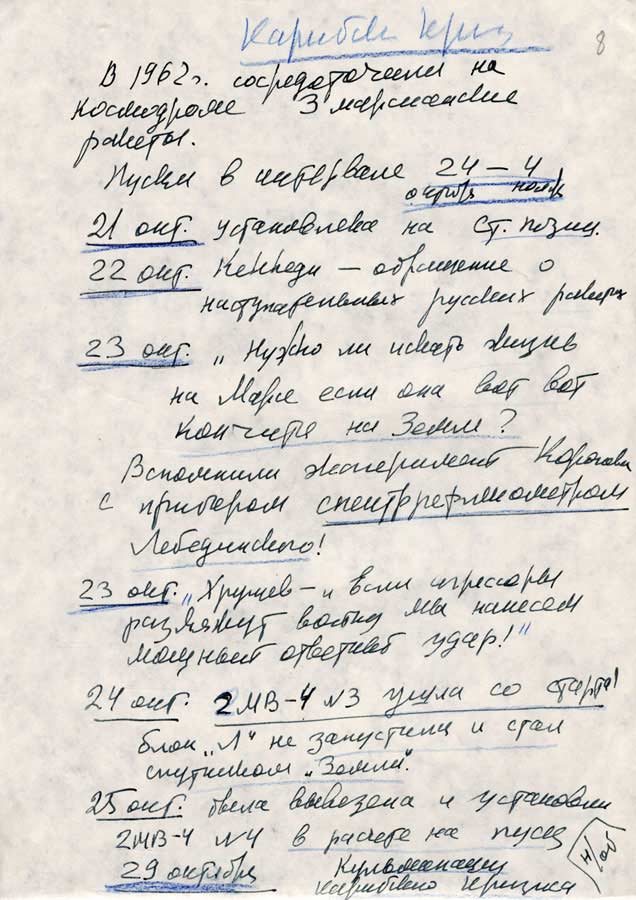 Карибск криз
8
В 1962 г. сосредоточили на
космодроме 3 марсианские
ракеты.
Пуски в интервале 24 – 4
октябр нояб
21 окт. установлена на Ст. позиц.
22 окт. Кеннеди – обращение о
наступательных русских ракетах
23 окт. „Нужно ли искать жизнь
на Марсе если она вот вот
кончится на Земле?
Вспомнили эксперимент Королева
с прибором спектррефлексометром
Лебединского!
23 окт. „Хрущев – и если агрессоры
развяжут войну мы нанесем
мощный ответный удар!"
24 окт. 2МВ-4 №3 ушла со старта!
блок „Л" не запустили и стал
спутником „Земли".
25 окт. была вывезена и установили
2МВ-4 №4 в расчете на пуск
29 октября Кульминация
Карибского кризиса
н/об